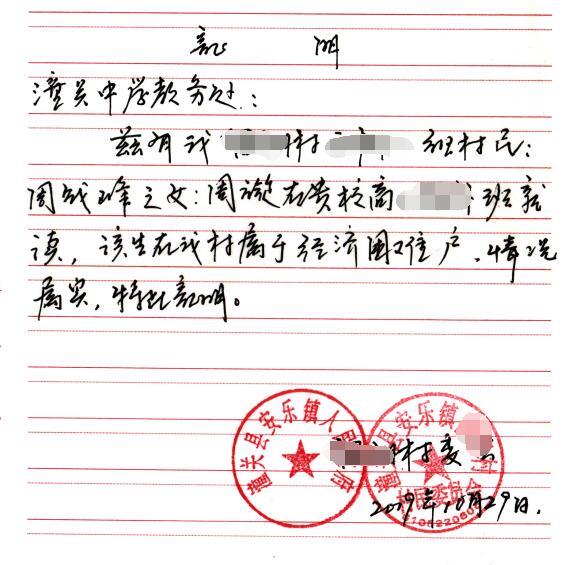 证 明
潼关中学教务处：
兹有我 村 组村民：
周战峰之女：周璇在贵校高 班就
读，该生在我村属于经济困难户，情况
属实，特此证明。
潼关县安乐镇人民政府
潼关县安乐镇 村
村民委员会
村委会
2019年10月29日.